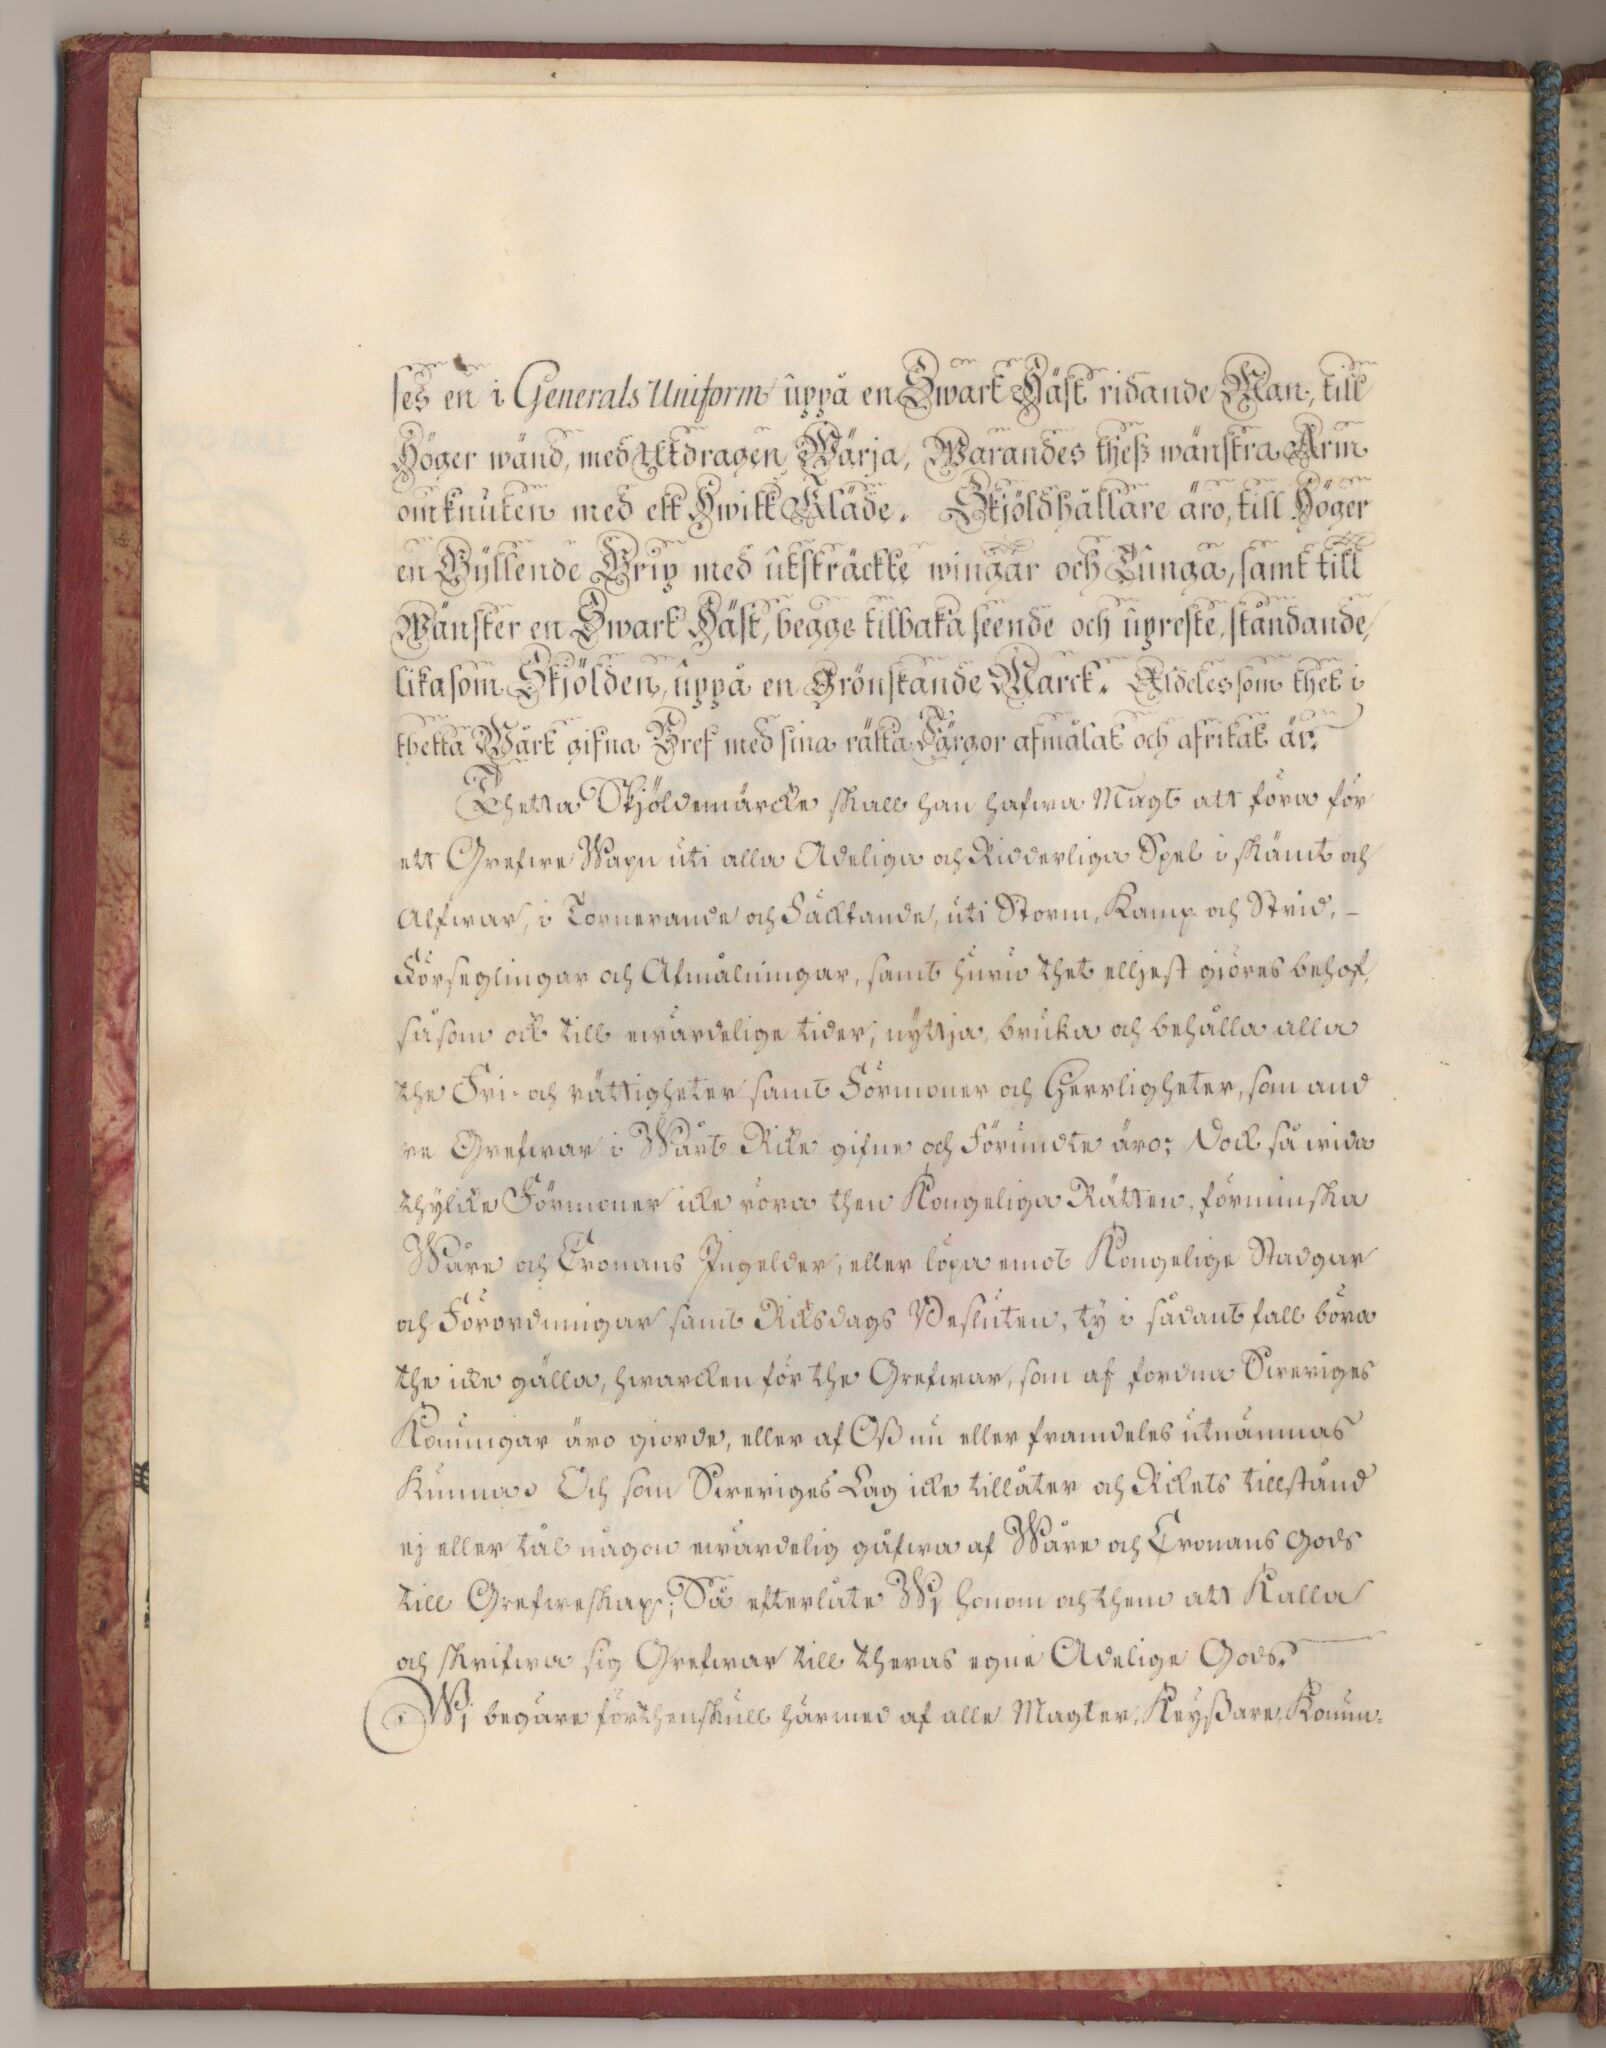 ses en i Generals Uniform uppå en Swart Häst ridande Man, till
Höger wänd, med Utdragen Wärja, Warandes thess wänstra Arm
omknuten med ett Hwitt Kläde. Skjöldhållare äro, till Höger
en Gyllende Grip med utsträckte wingar och Tunga, samt till
Wänster en Swart Häst, begge tilbaka seende och upreste, ståndande,
lika som Skjölden, uppå en Grönskande Marck. Aldeles som thet i
thetta Wårt gifna Bref med sina rätta Färgor afmålat och afritat är.
Thetta Skjöldemärcke skall han hafwa Magt att föra för
ett Grefwe Wapn uti alla Adeliga och Ridderliga Spel i skämt och
Alfwar, i Tornerande och Fäcktande, uti Storm, Kamp och Strid, –
Förseglingar och Afmålningar, samt huru thet elljest giöres behof,
såsom ock till ewärdelige tider, nyttja, bruka och behålla alla
the Fri- och rättigheter samt Förmoner och Herrligheter, som and
re Grefwar i Wårt Rike gifne och Förundte äro; Dock så wida
thylcke Förmoner icke röra then Kongeliga Rätten, förminska
Wåre och Cronans Ingelder, eller löpa emot Kongelige Stadgar
och Förordningar samt Riksdags Besluten, ty i sådant fall böra
the icke gälla, hwarcken för the Grefwar, som af fordna Sweriges
Konungar äro giorde, eller af Oss nu eller framdeles utnämnas
kunna. Och som Sweriges Lag icke tillåter och Rikets tillstånd
ej eller tål någon ewärdelig gåfwa af Wåre och Cronans Gods
till Grefweskap; Så efterlåte Wj honom och them att Kalla
och skrifwa sig Grefwar till theras egne Adelige Gods.
Wj begäre förthenskull härmed af alle Magter, Keyßare, Konun-